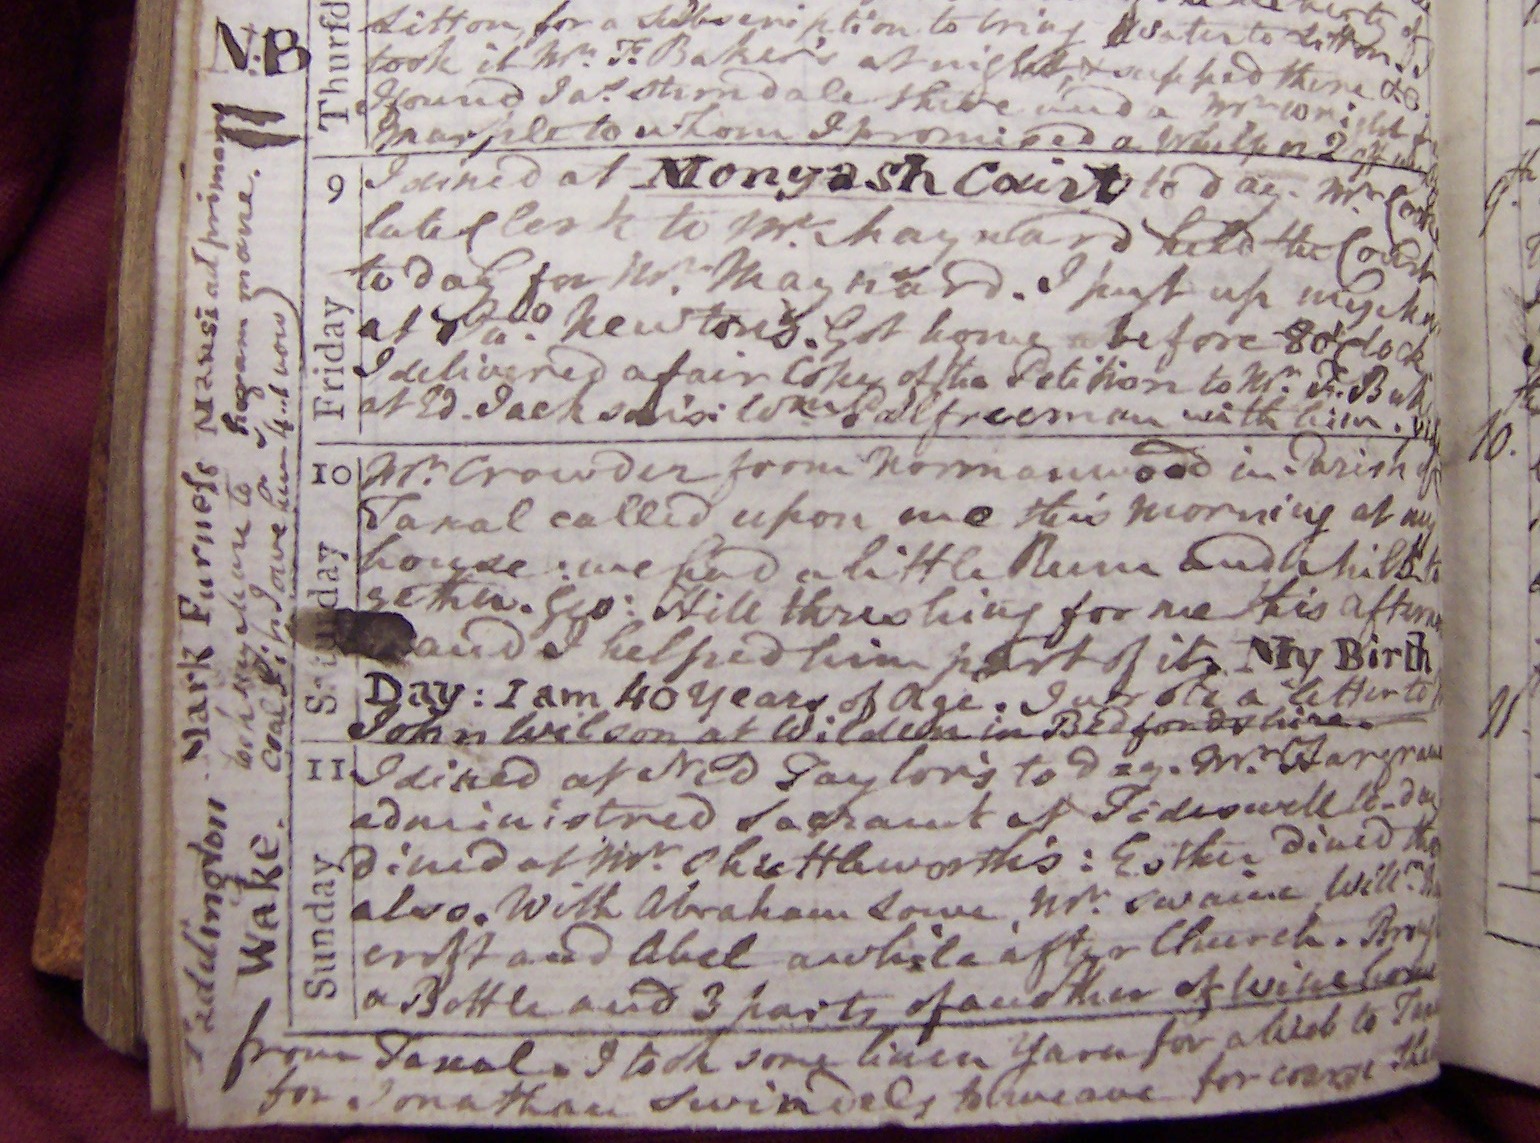 N:B
Thursd
Litton, for a subscription to bring Water to Litton. I
took it Mr. F. Baker's at night, & supped there &c
I found Jas. Stirndale there and a Mr. Wright
Marple to whom I promised a Whelp
9
Friday
I dined at Monyash Court to day. Mr.
late Clerk to Mr. Maynard held the Court
to day for Mr. Maynard. I put up my
at Newton's. Got home before 8 o'Clock
I delivered a fair Copy of the Petition to Mr. F. Bak
at Ed. Jackson's: Palfreeman with him.
10
Saturday
Mr. Crowder from Normanwood in Parish of
Taxal called upon me this morning at my
house: we had a little Rum and whilst to
gether. Geo: Hill threshing for me this afterno
and I helped him part of it. My Birth
Day: I am 40 Years of Age. I wrote a letter to
John Wilson at Wilden in Bedfordshire.
11
Sunday
I dined at Ned Taylor's to day. Mr. Hargrave
administred Sacrament at Tideswell to-day
dined at Mr. Shuttleworth's: Esther dined the
also. With Abraham Lowe, Mr. Swaine, Willm.
croft and Abel awhile after Church. Brough
a Bottle and 3 parts of another of Wine home
from Taxal. I took some linen Yarn for a Web to
for Jonathan Swindels to weave for course
Taddington
Wake.
Mark Furness Mansi ad primam
horam mane.
Coal Pit, I owe him 4 but now)